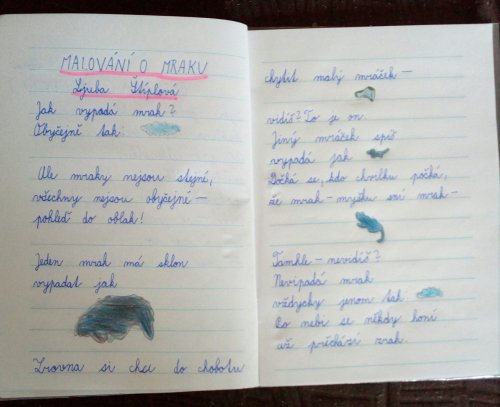 MALOVÁNÍ O MRAKU
Ljuba Štíplová
Jak vypadá mrak?
Obyčejně tak:
Ale mraky nejsou stejní,
všechny nejsou obyčejné –
pohleď do oblak!
Jeden mrak má sklon
vypadat jak
Zrovna si chce do chobotu
chytit malý mráček –
vidíš? To je on.
Jiný mráček spíš
vypadá jak
Dočká se, kdo chvilku počká,
že mrak – myšku sní mrak –
Tamhle – nevidíš?
Nevipadá mrak
vždycky jenom tak:
Po nebi se někdy honí
až přichází zrak.